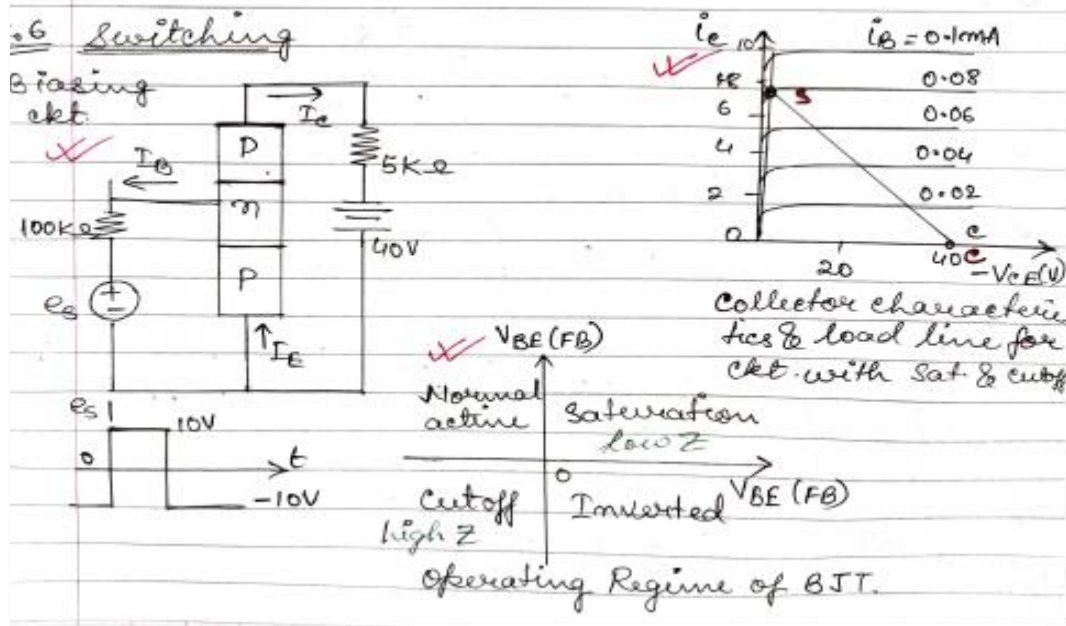 .6 Switching
Biasing
ckt.
I_C
P
5KΩ
I_B
n
100KΩ
40V
P
e_s
I_E
e_s
10V
0
t
-10V
i_c
10
i_B = 0.1mA
8
0.08
S
6
0.06
4
0.04
2
0.02
0
C
20
40 C
-V_CE(V)
Collector characteris
tics & load line for
ckt. with sat. & cutoff
V_BE (FB)
Normal
active
Saturation
low Z
0
V_BE (FB)
Cutoff
Inverted
high Z
Operating Regime of BJT.